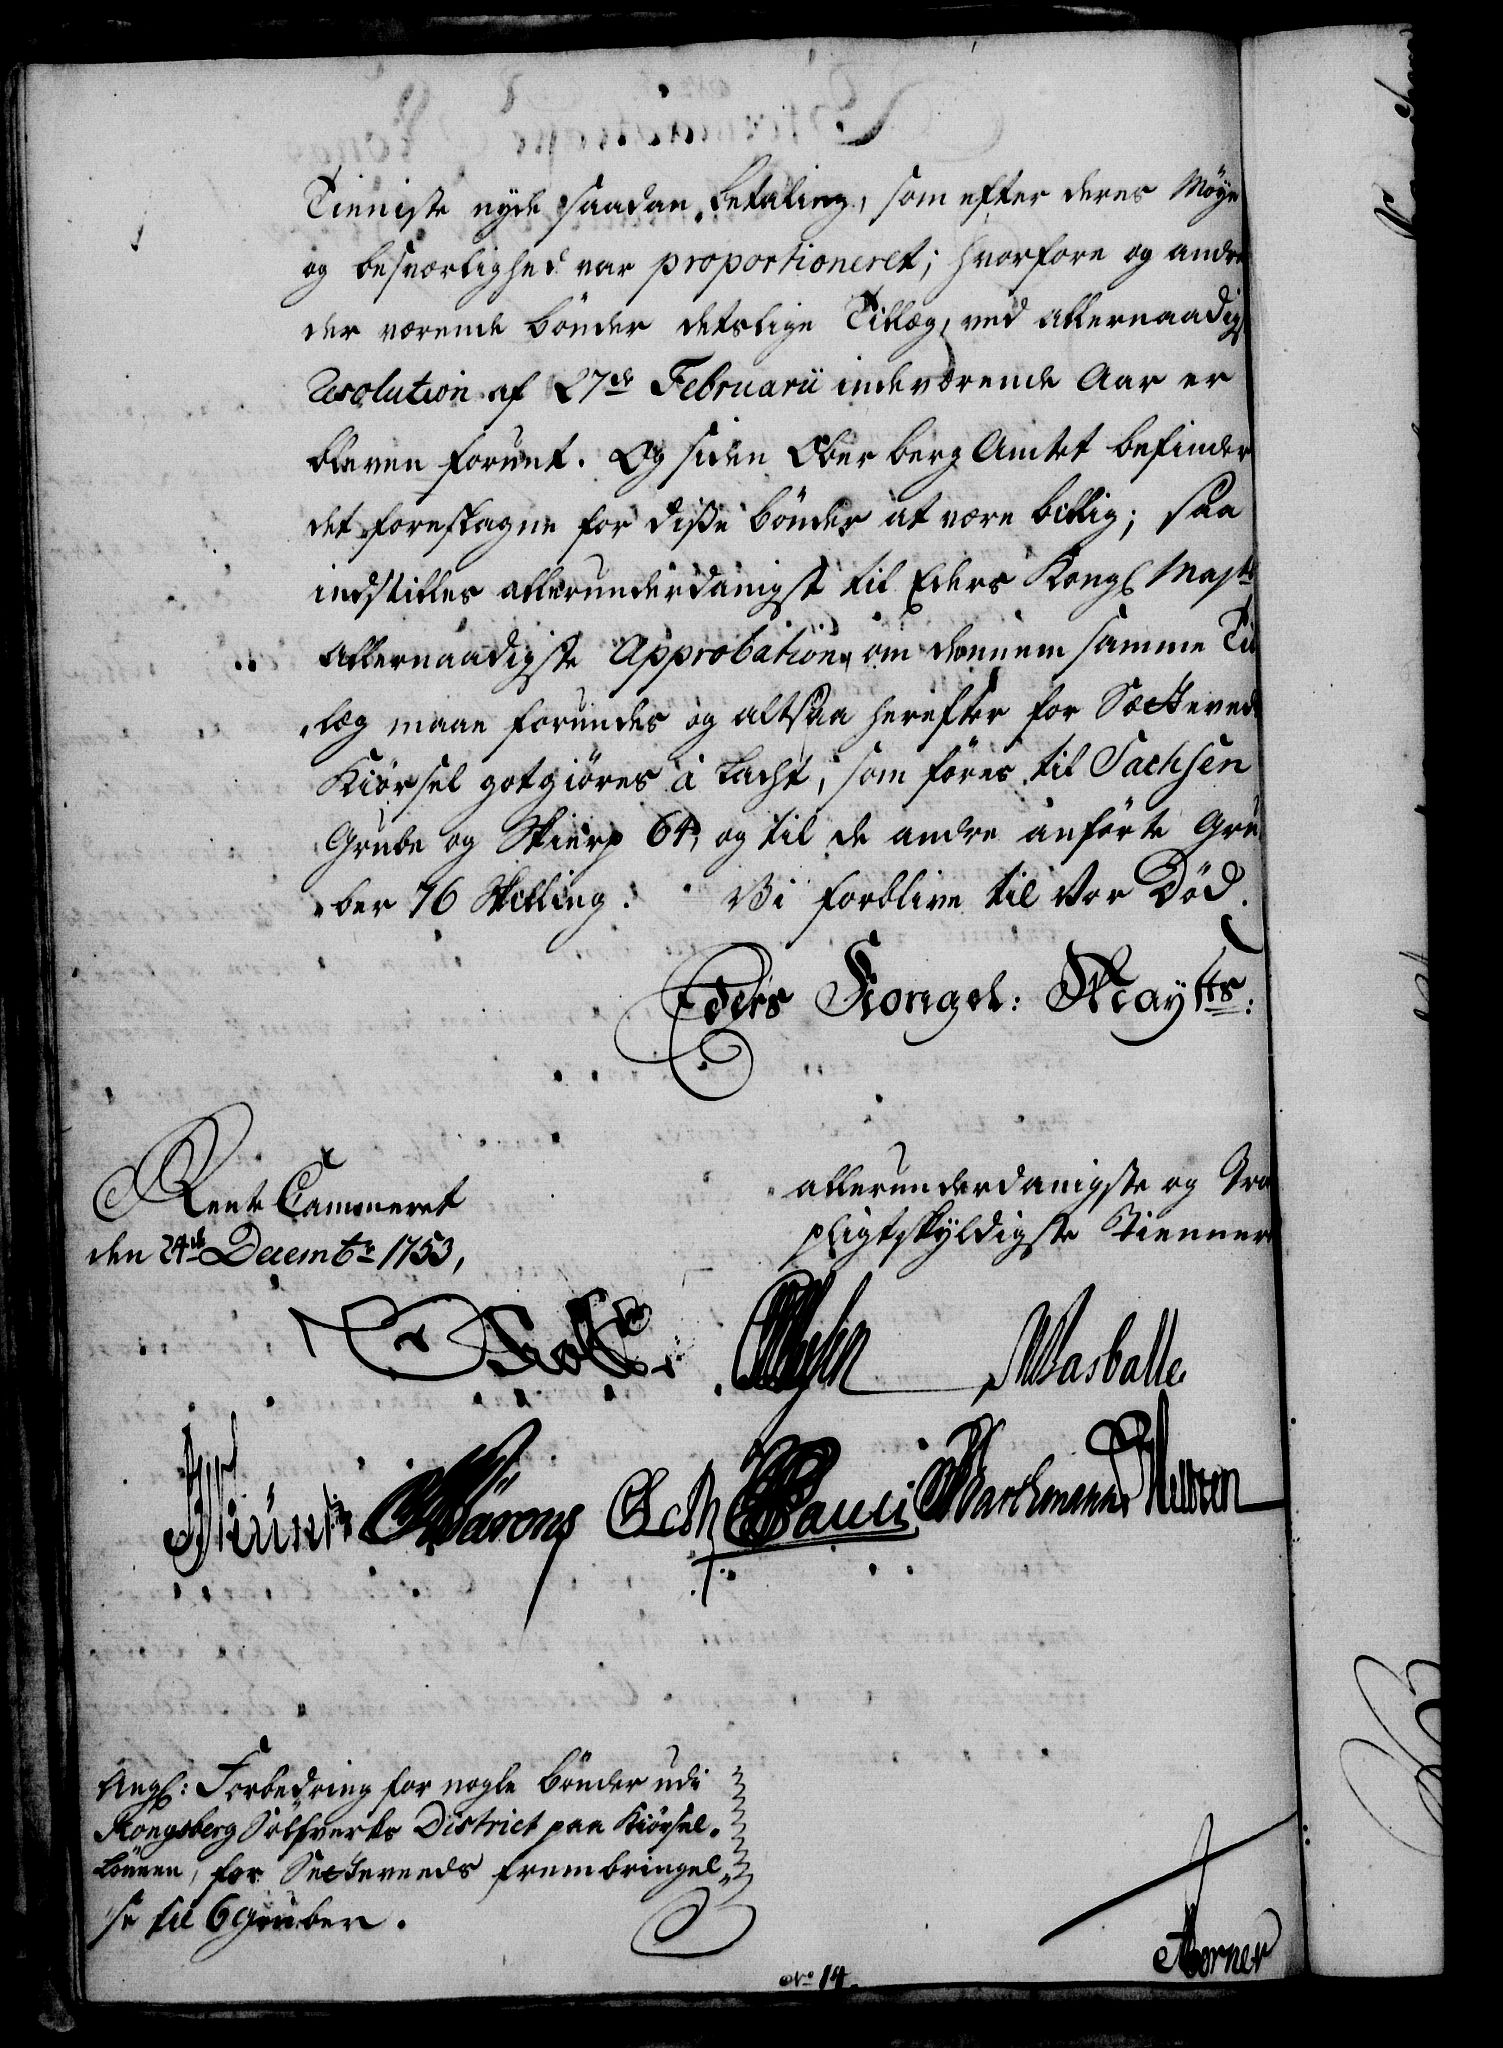 Tieniste nyde saadan betaling, som efter deres Møye
og besværlighed var proportioneret; hvorfore og andre
der værende bönder detslige Tillæg, ved allernaadigst
Resolution af 27de Februarii indeværende Aar er
bleven forunt. Og siden Ober berg Amtet befinder
det forestagne for disse bönder at være billig; saa
indstilles allerunderdanigst til Eders Kongl Majts
allernaadigste Approbation, om dennem samme Til
læg maae forundes og altsaa herefter for Setteveds
Kiörsel gotgiöres à Lacht, som föres til Sachsen
Grube og Skierp 64, og til de andre anförte Gru
ber 76 Skilling. Vi forblive til Vor Död.
Eders Kongel: Maytts:
Rente Cammeret
den 24de Decembr 1753,
allerunderdanigste og Tro
pligtskyldigste Tiennere
Wasballe
Bærner
Angl: Forbedring for nogle bönder udi
Kongsberg Sölfverks District paa Kiörsel-
Lönnen, for Setteveeds frembringel-
se til 6 Gruber.
No 14.